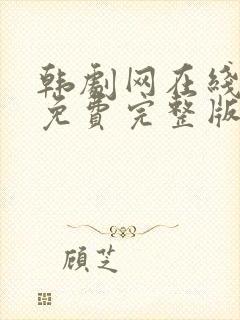 韩剧网在线
免费完整版
顾芝